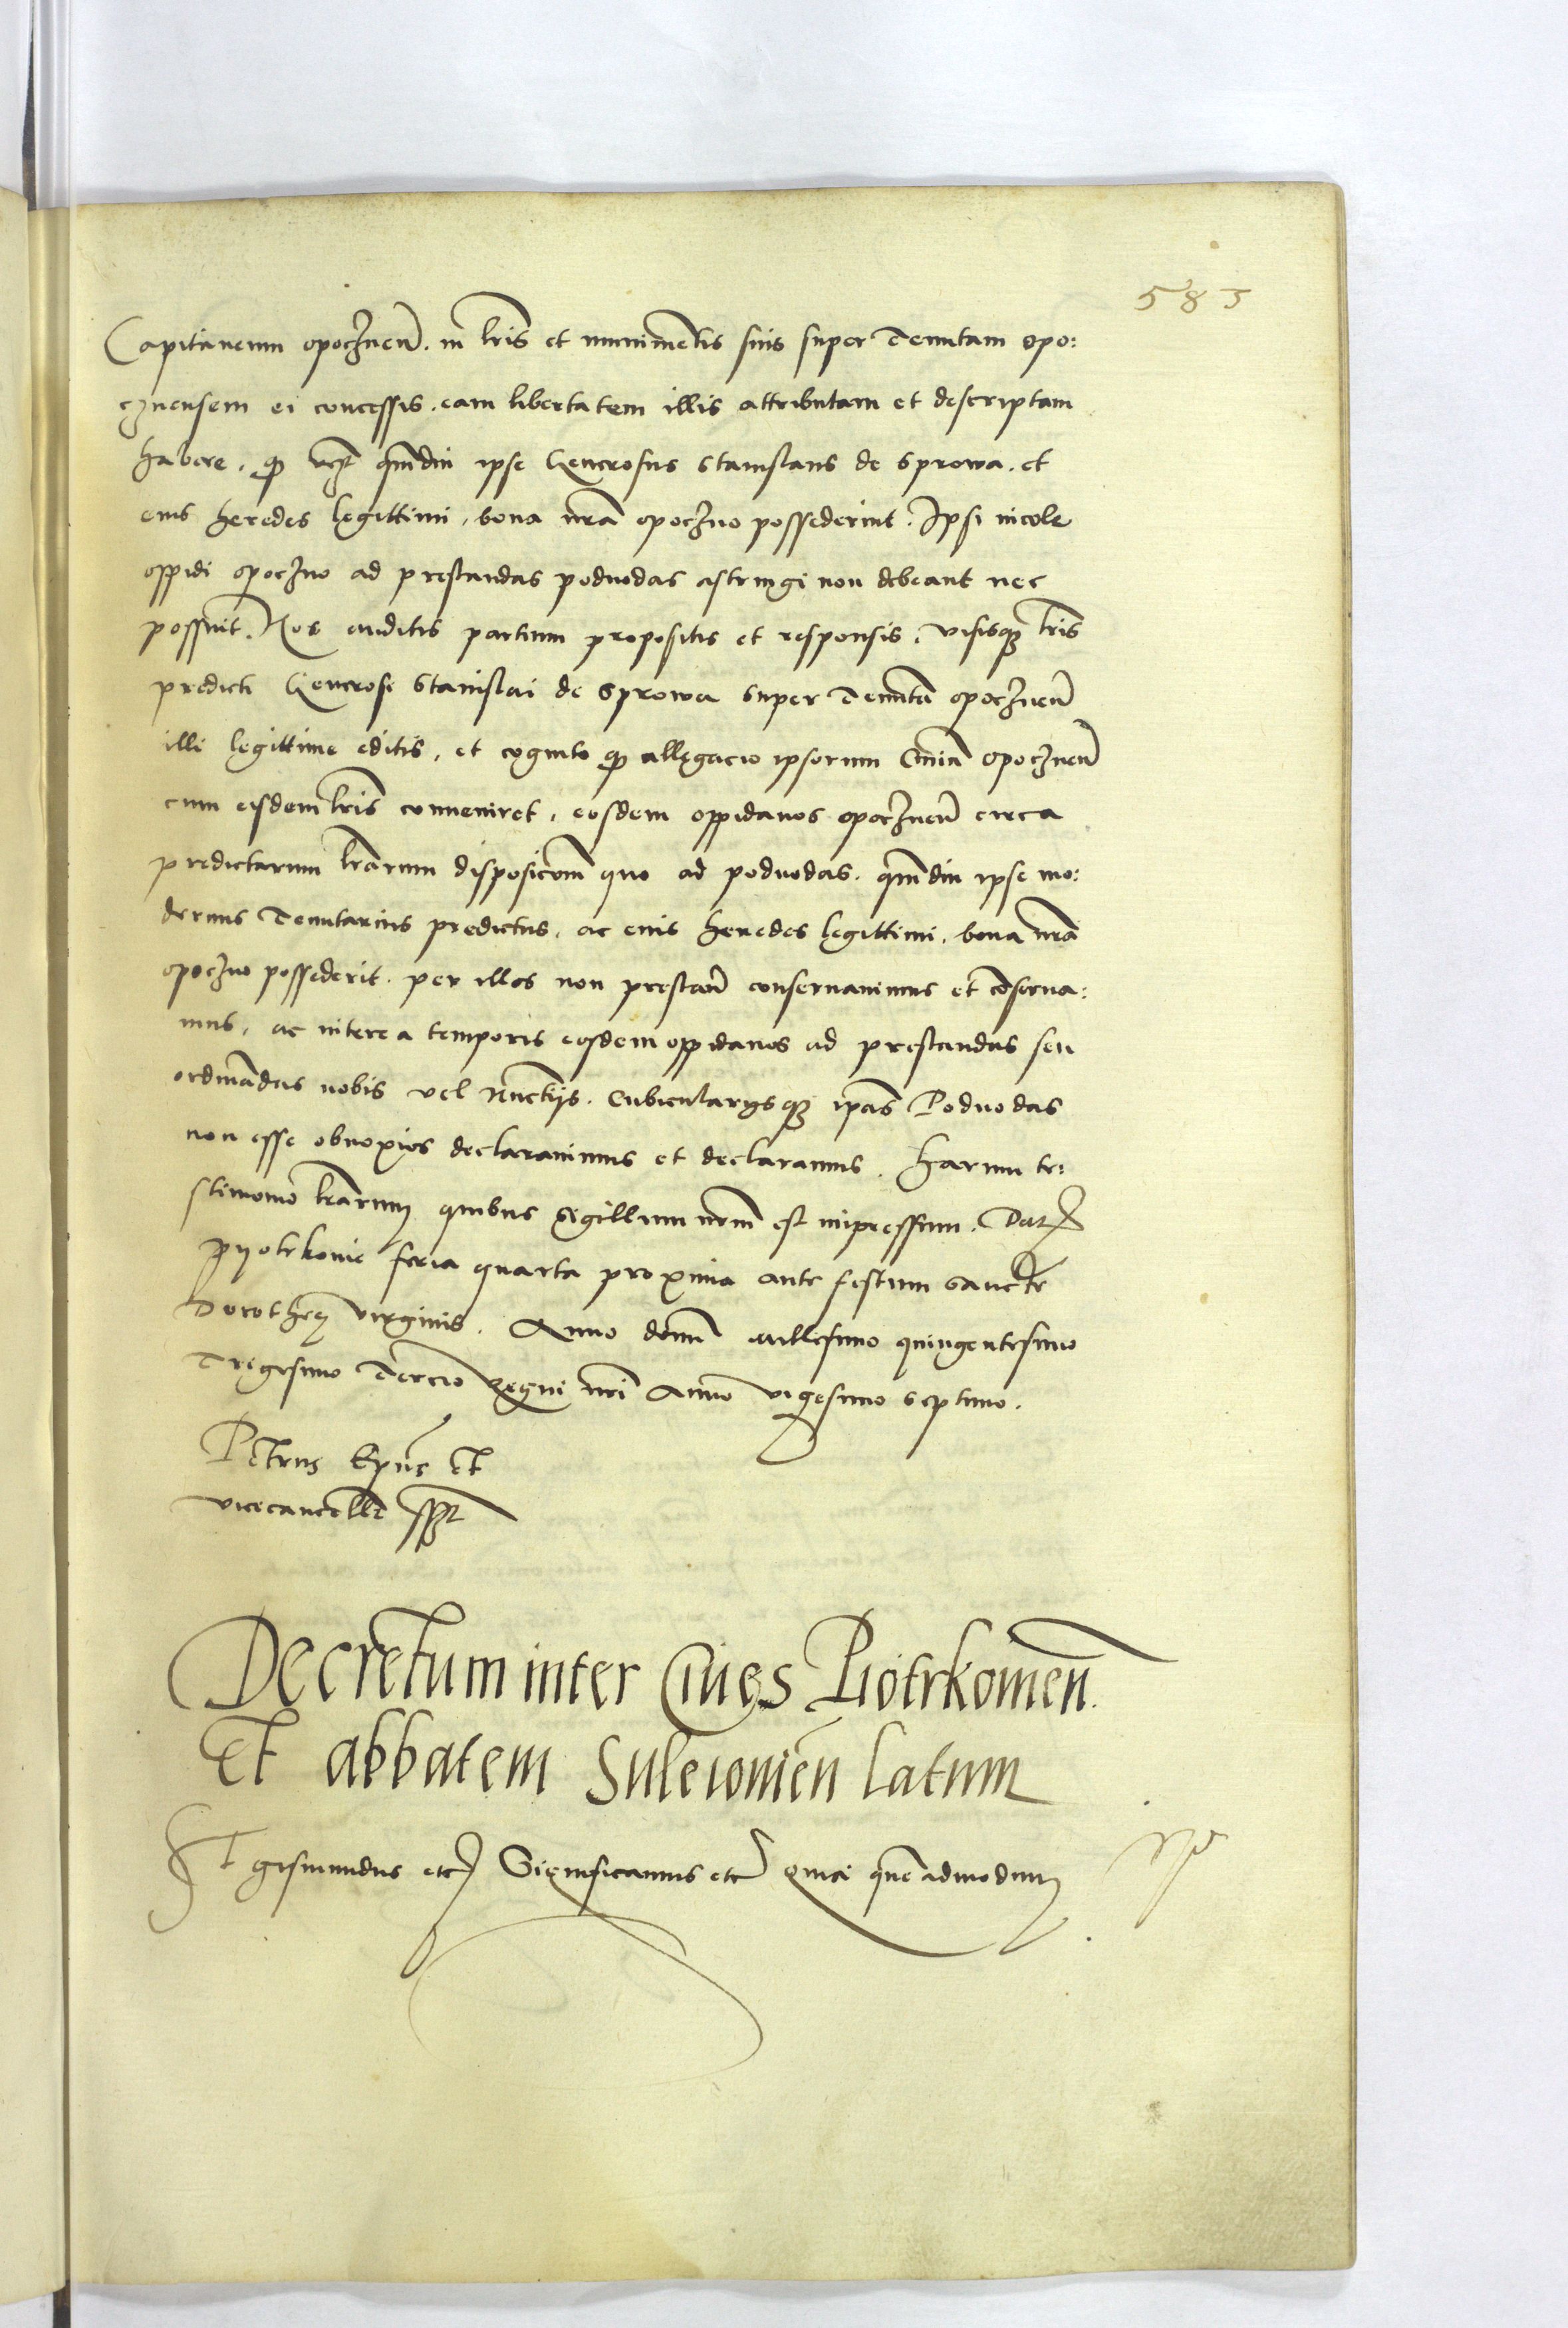 583
Capitaneum opocznen̄. in l̄ris et munimentis suis super Tenutam opo:
cznensem ei concessis. eam libertatem illis attributam et descriptam
habere. qp̄ q̄mdiu ipse Generosus Stanislaus de Sprowa. et
eius heredes legittimi, bona n̄ra opoczno possederint. Ipsi incole
oppidi opoczno ad prestandas podvodas astringi non debeant nec
possint. Nos auditis partium propositis et responsis. visisqz l̄ris
predicti Generosi Stanislai de Sprowa super Tenutā opocznen̄
illi legittime editis, et cognito qp̄ allegacio ipsorum Civiū opocznen̄
cum eisdem l̄ris conveniret, eosdem oppidanos opocznen̄ circa
predictarum l̄rarum disposicōem quo ad podvodas. q̄mdiu ipse mo:
dernus Tenutarius predictus, ac eius heredes legittimi. bona n̄ra
opoczno possederit. per illos non prestan̄ conservavimus et cōserva:
mus, ac interea temporis eosdem oppidanos ad prestandas seu
ordinādas nobis vel Nunctijs. Cubicularijsqz ip̄as Podvodas
non esse obnoxios declaravimus et declaramus. Harum te:
stimonio l̄rarum quibus Sigillum n̄rm est impressum. Dat
pyotrkovie feria quarta proxima ante festum Sancte
Dorothee virginis. Anno domī millesimo quingentesimo
Trigesimo Tercio Regni n̄ri Anno vigesimo septimo.
Petrus Ep̄us et
vicecancell̄r sspt
Decretum inter Cives Piotrkovien̄.
Et abbatem Suleiovien̄ latum
Sigismundus etc Significamus etc quia quēadmodum